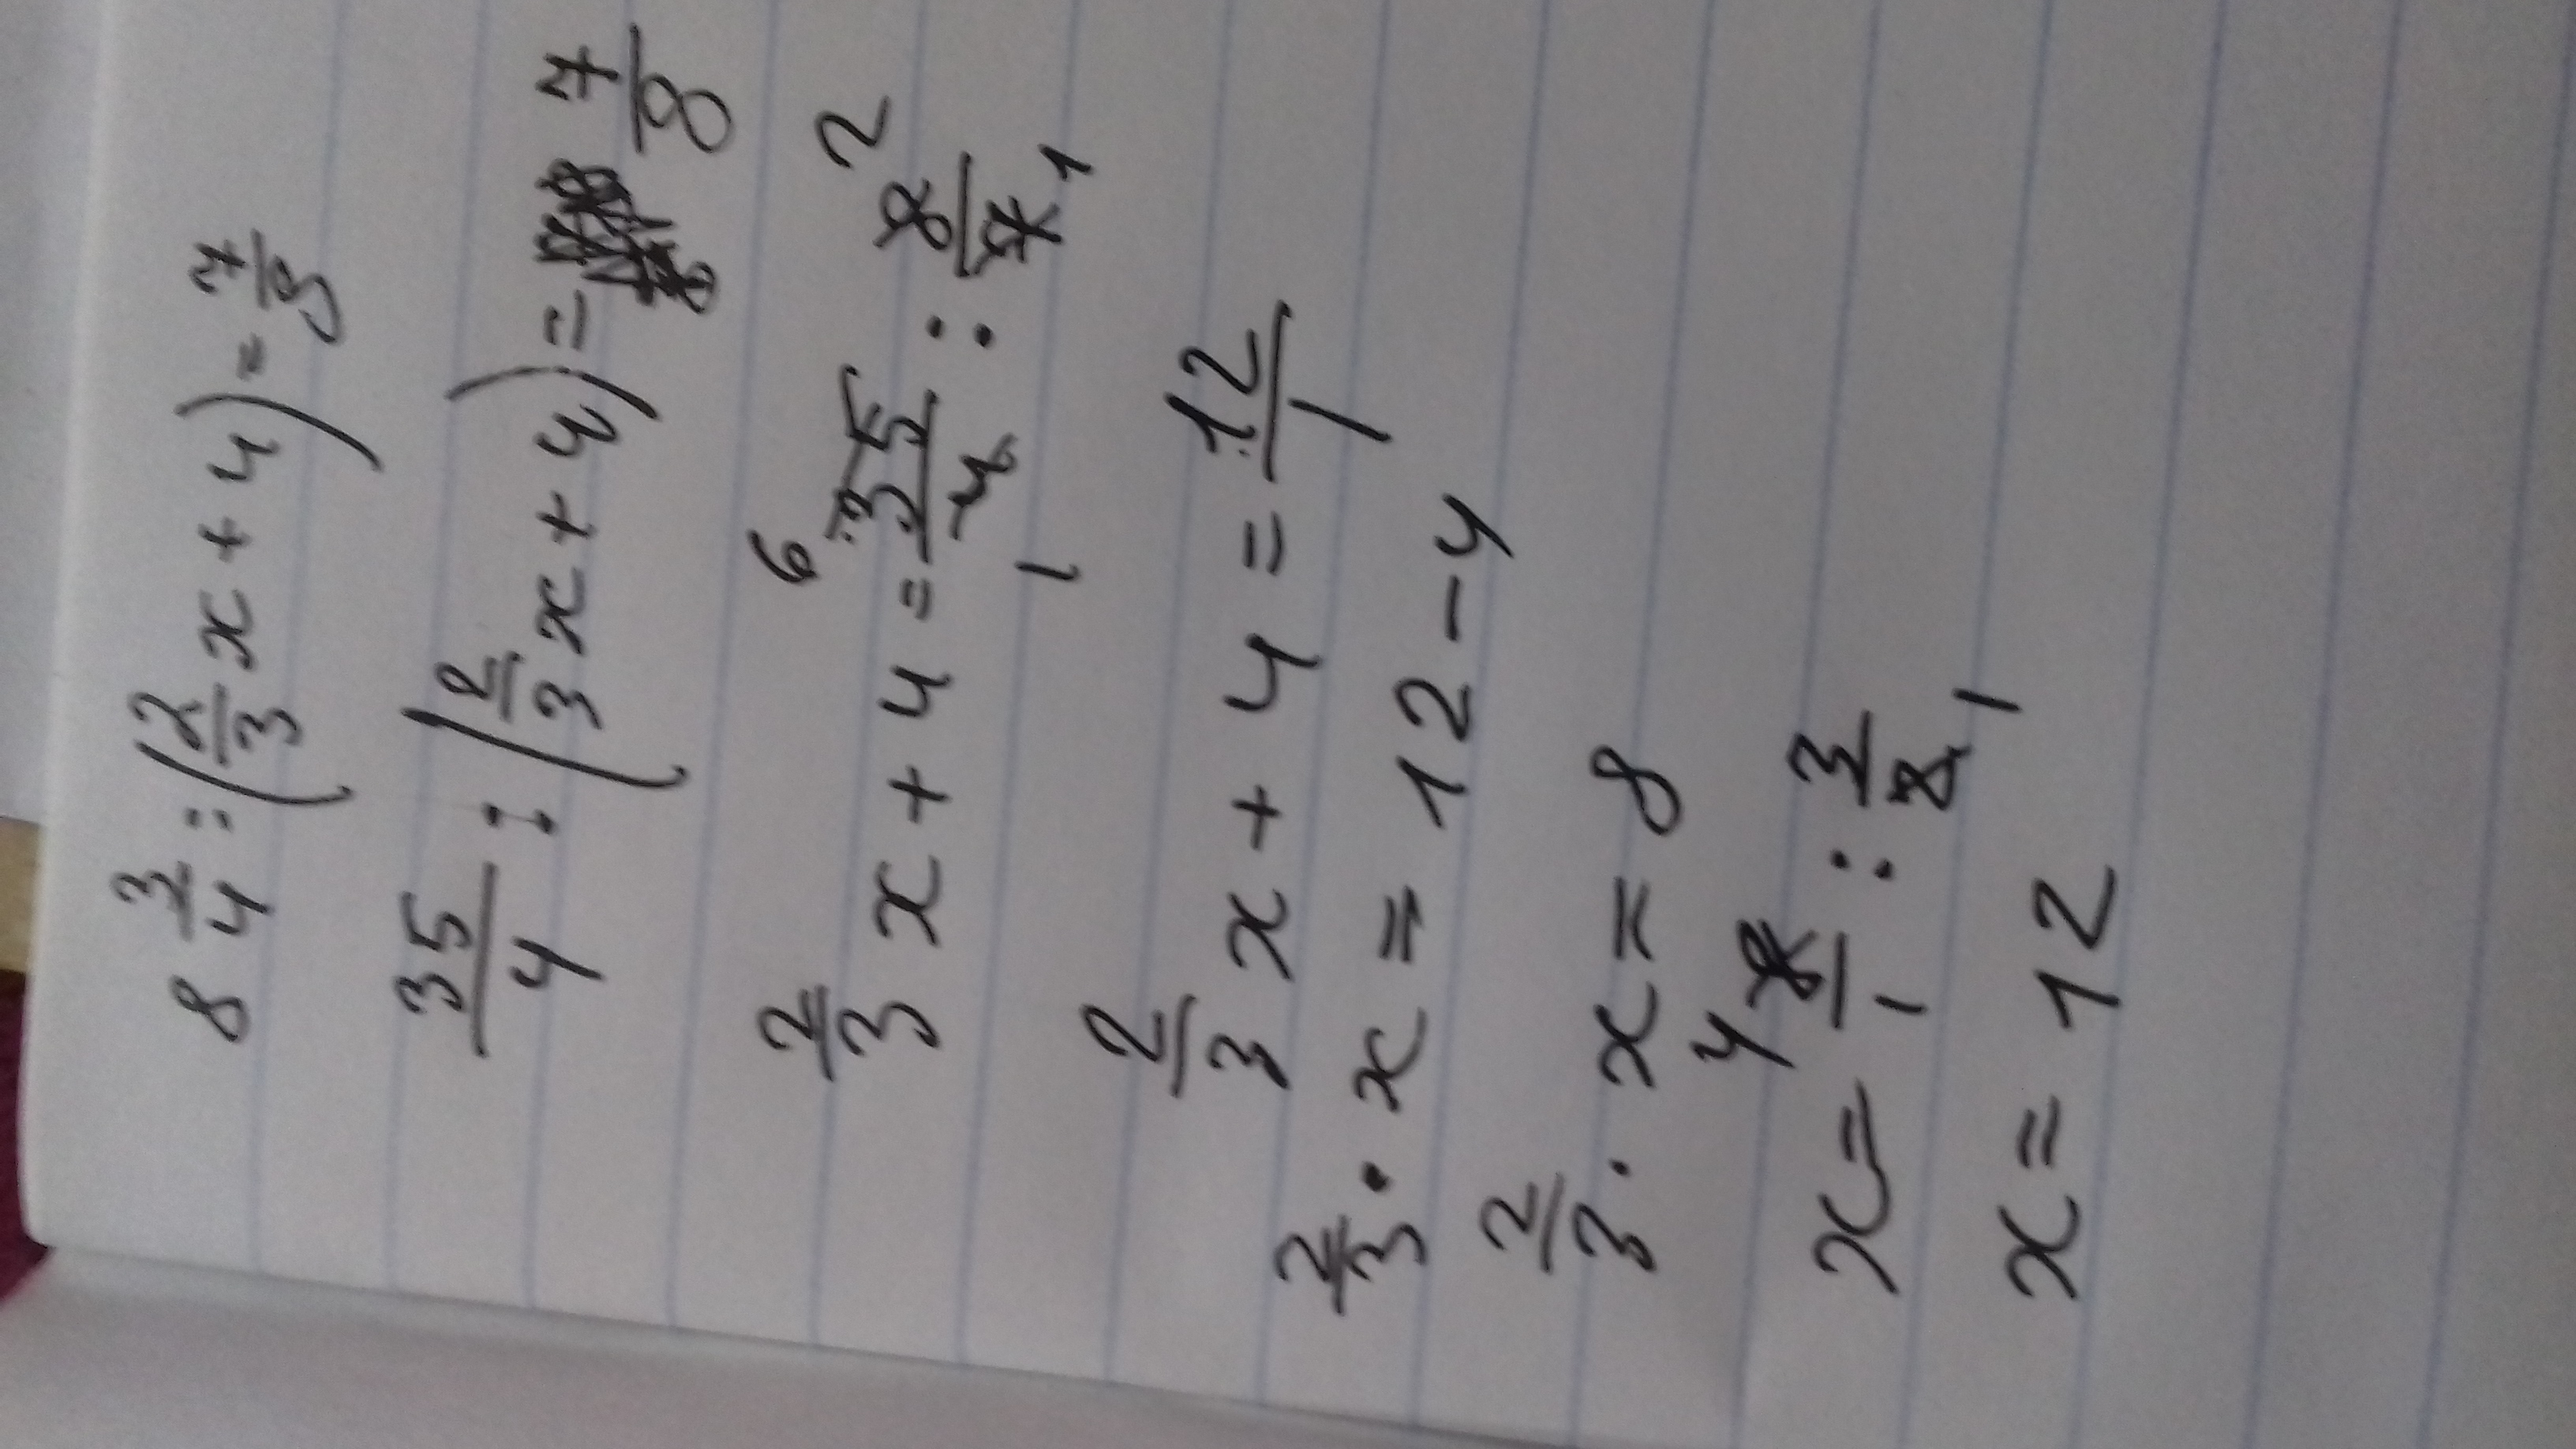 8 3/4 : (2/3 x + 4) = 7/8
35/4 : (2/3 x + 4) = 7/8
2/3 x + 4 = 6 35/4 1 : 2 8/7 1
2/3 x + 4 = 12/1
2/3 · x = 12 - 4
2/3 · x = 8
x = 4 8/1 : 3/2 1
x = 12